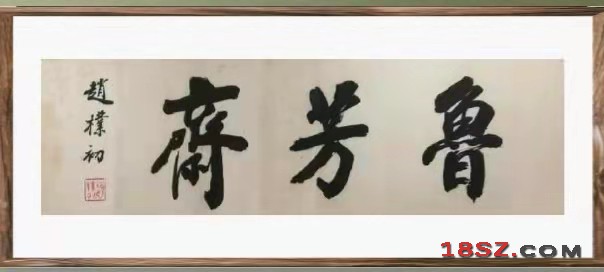 魯芳齋
趙樸初
18SZ.COM